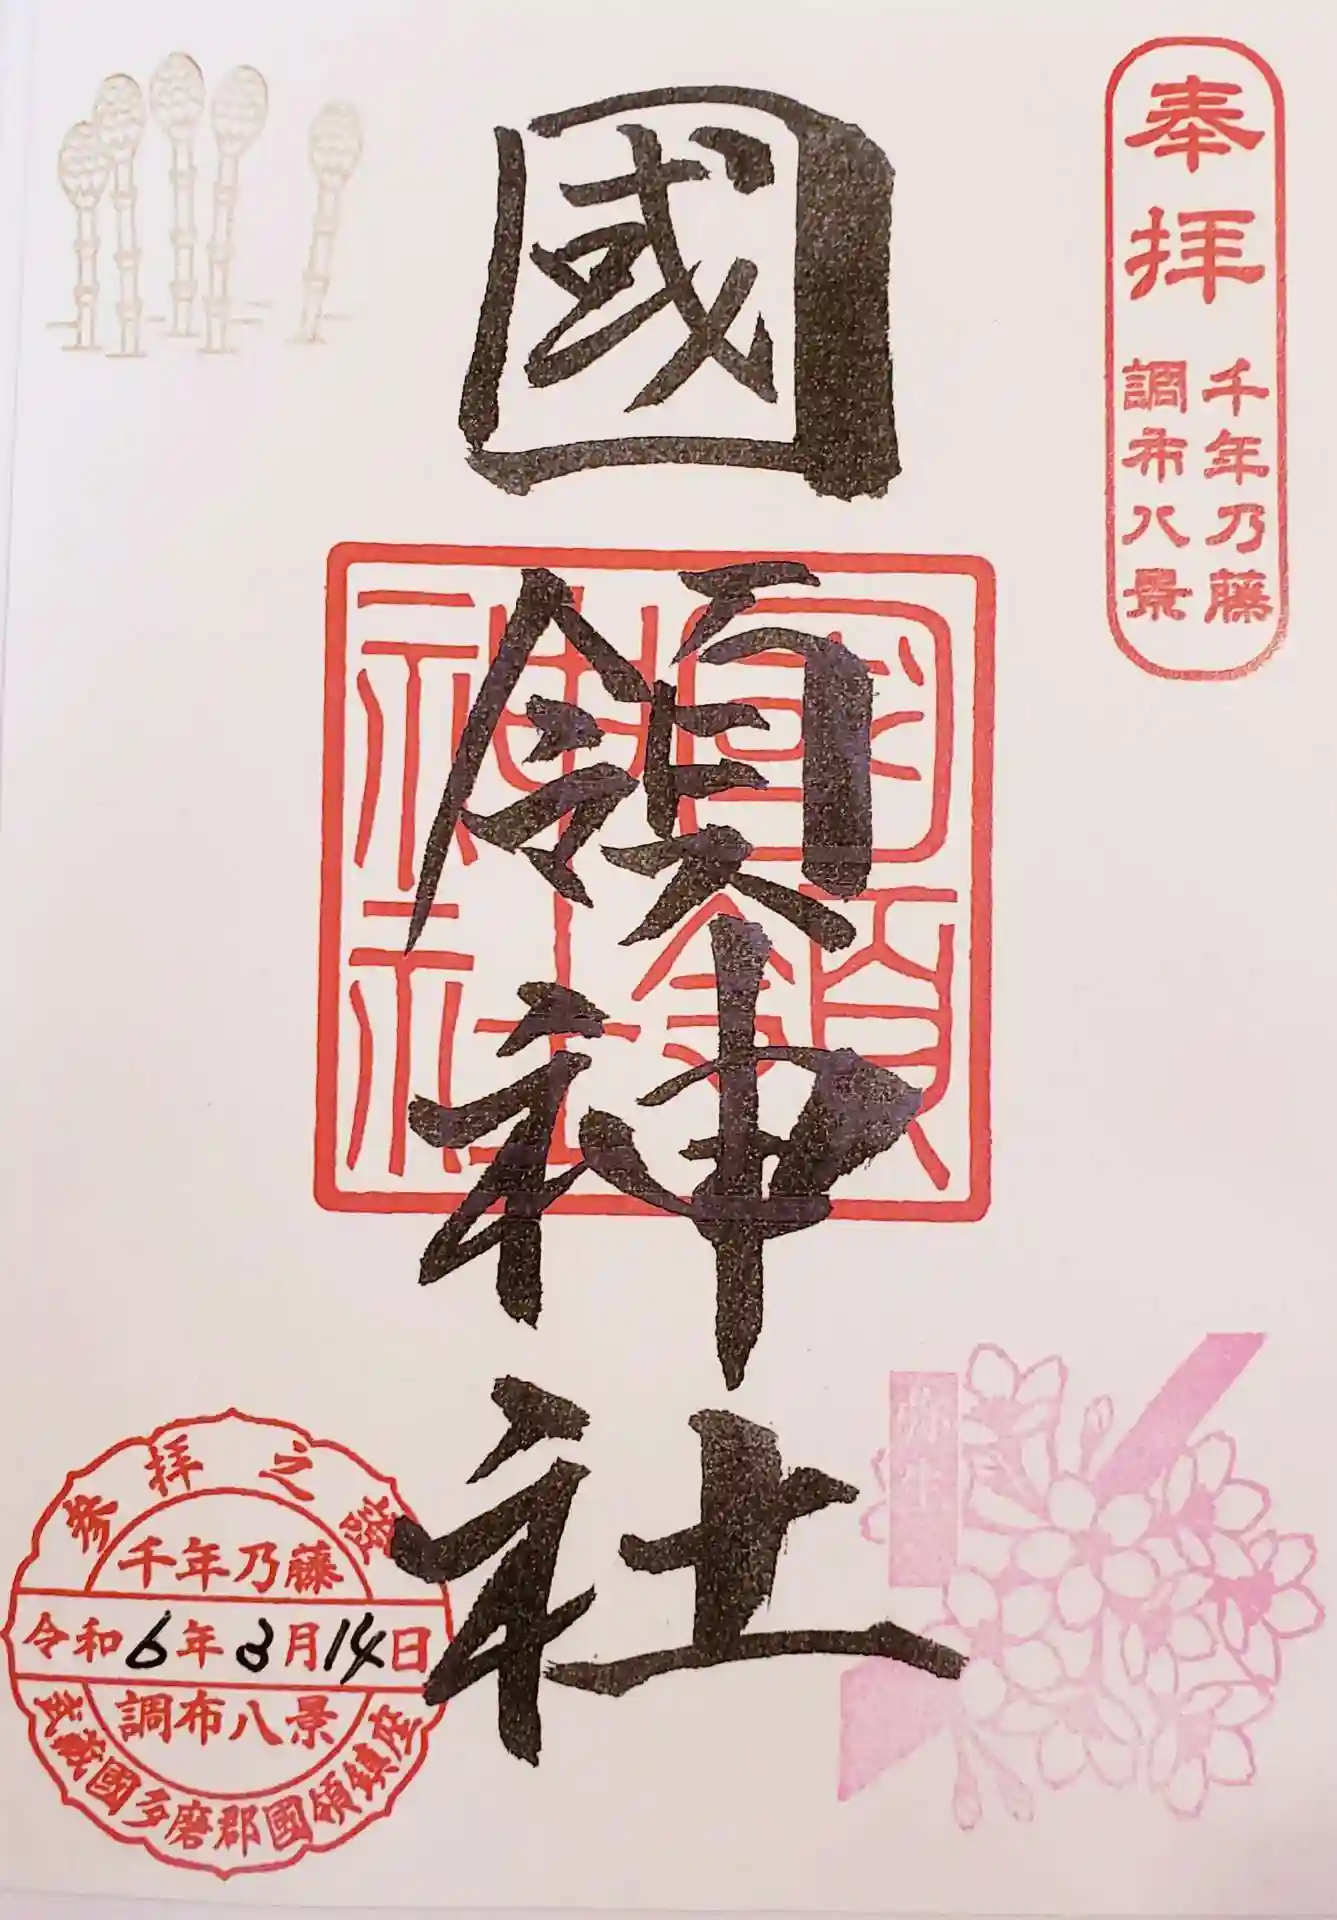 奉拝
千年乃藤
調布八景
國領神社
國領
神社
弥生
参拝之證
千年乃藤
令和6年3月14日
調布八景
武蔵國多磨郡國領鎮座